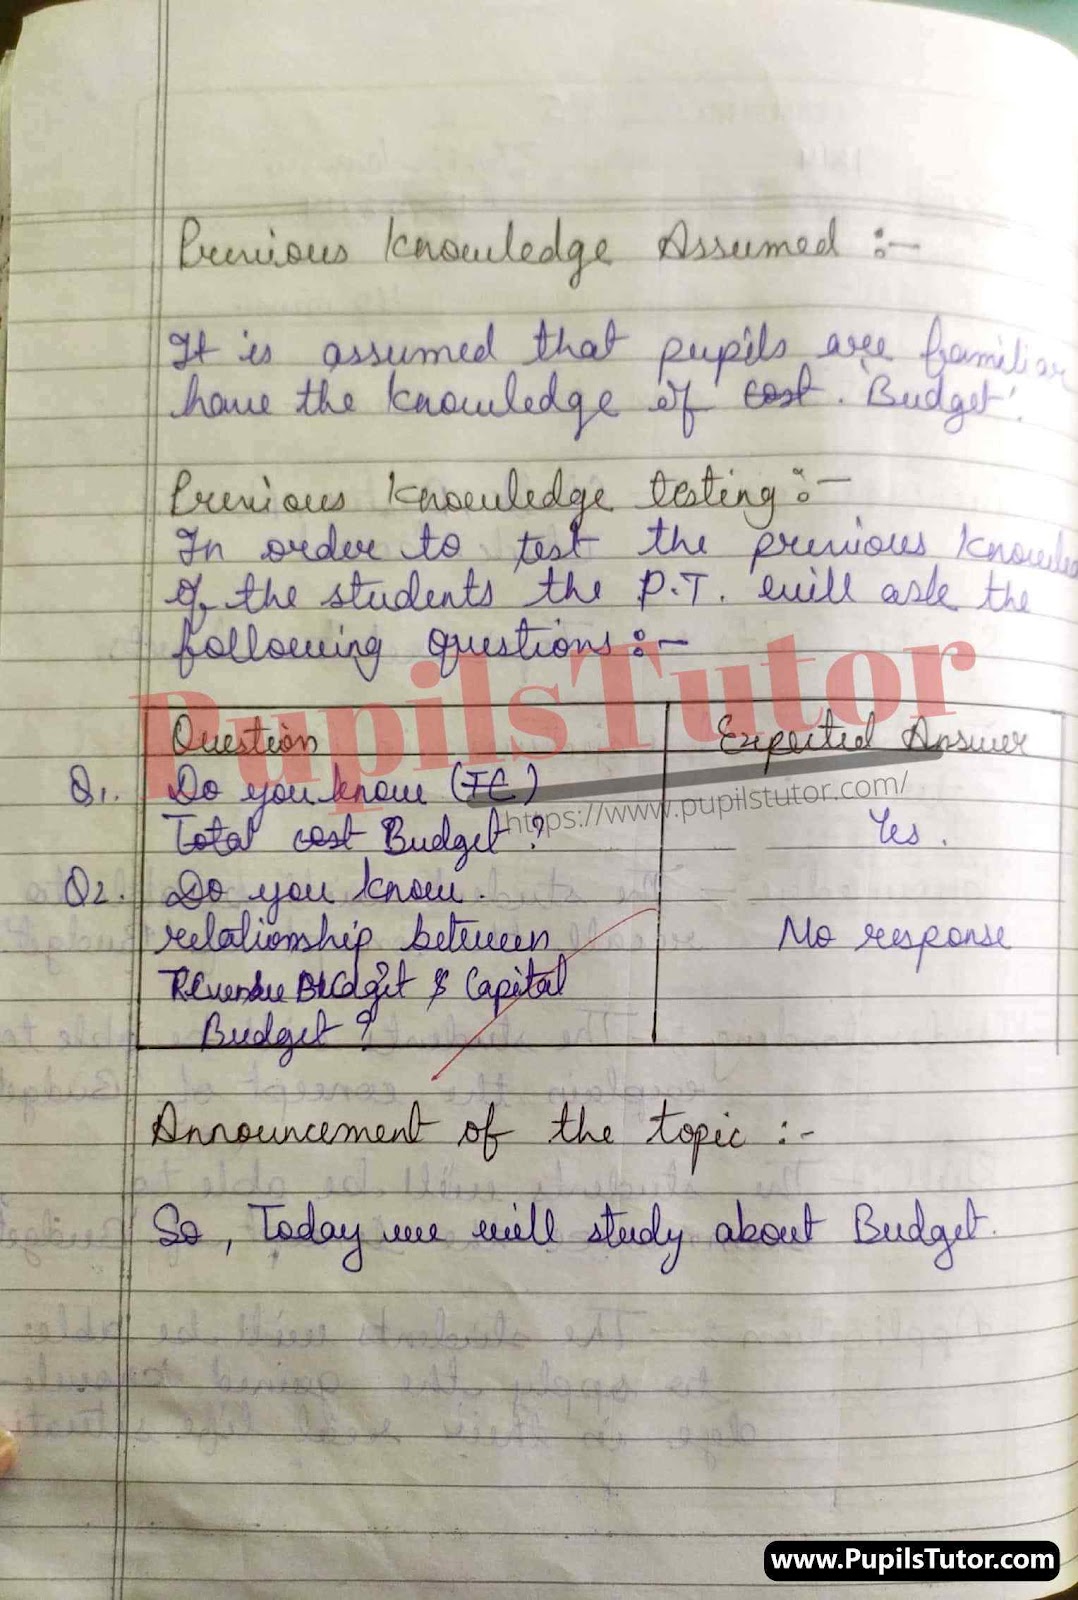 Previous Knowledge Assumed :-
It is assumed that pupils are familiar
have the knowledge of cost. 'Budget'.
Previous Knowledge testing :-
In order to test the previous knowled
of the students the P.T. will ask the
following questions :-
PupilsTutor
https://www.pupilstutor.com/
Question Expected Answer
Q1. Do you know (TC)
Total cost Budget ? Yes.
Q2. Do you know.
relationship between No response
Revenue Budget & Capital
Budget ?
Announcement of the topic :-
So, Today we will study about Budget.
www.PupilsTutor.com